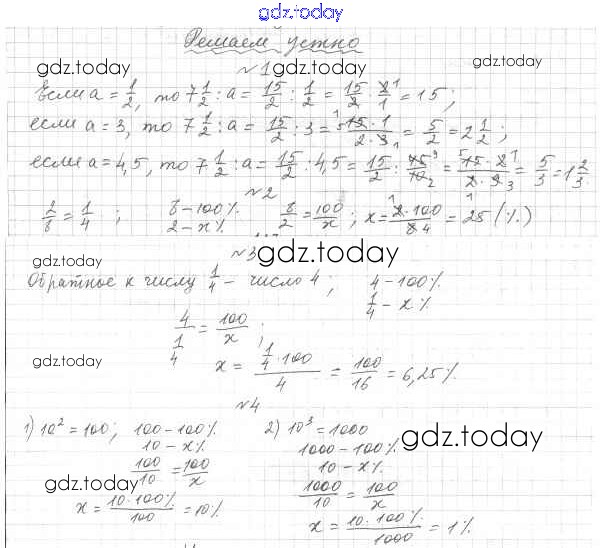 gdz.today
Решаем устно
gdz.today gdz.today gdz.today
№1
Если a = 1/2, то 7 1/2 : a = 15/2 : 1/2 = 15/2 · 2/1 = 15;
если a = 3, то 7 1/2 : a = 15/2 : 3 = 15·1/2·3 = 5/2 = 2 1/2;
если a = 4,5, то 7 1/2 : a = 15/2 : 4,5 = 15/2 : 45/10 = 15·2/2·9 = 5/3 = 1 2/3.
№2
2/8 = 1/4; 8 – 100% 8/2 = 100/x; x = 2·100/8 = 25 (%)
2 – x%
№3
gdz.today gdz.today
Обратное к числу 1/4 – число 4; 4 – 100%
1/4 – x%
4/(1/4) = 100/x;
gdz.today
x = (1/4 · 100)/4 = 100/16 = 6,25%.
№4
1) 10² = 100; 100 – 100% 2) 10³ = 1000
10 – x% 1000 – 100%
gdz.today
100/10 = 100/x 10 – x%
gdz.today
1000/10 = 100/x
x = 10·100%/100 = 10%
x = 10·100%/1000 = 1%